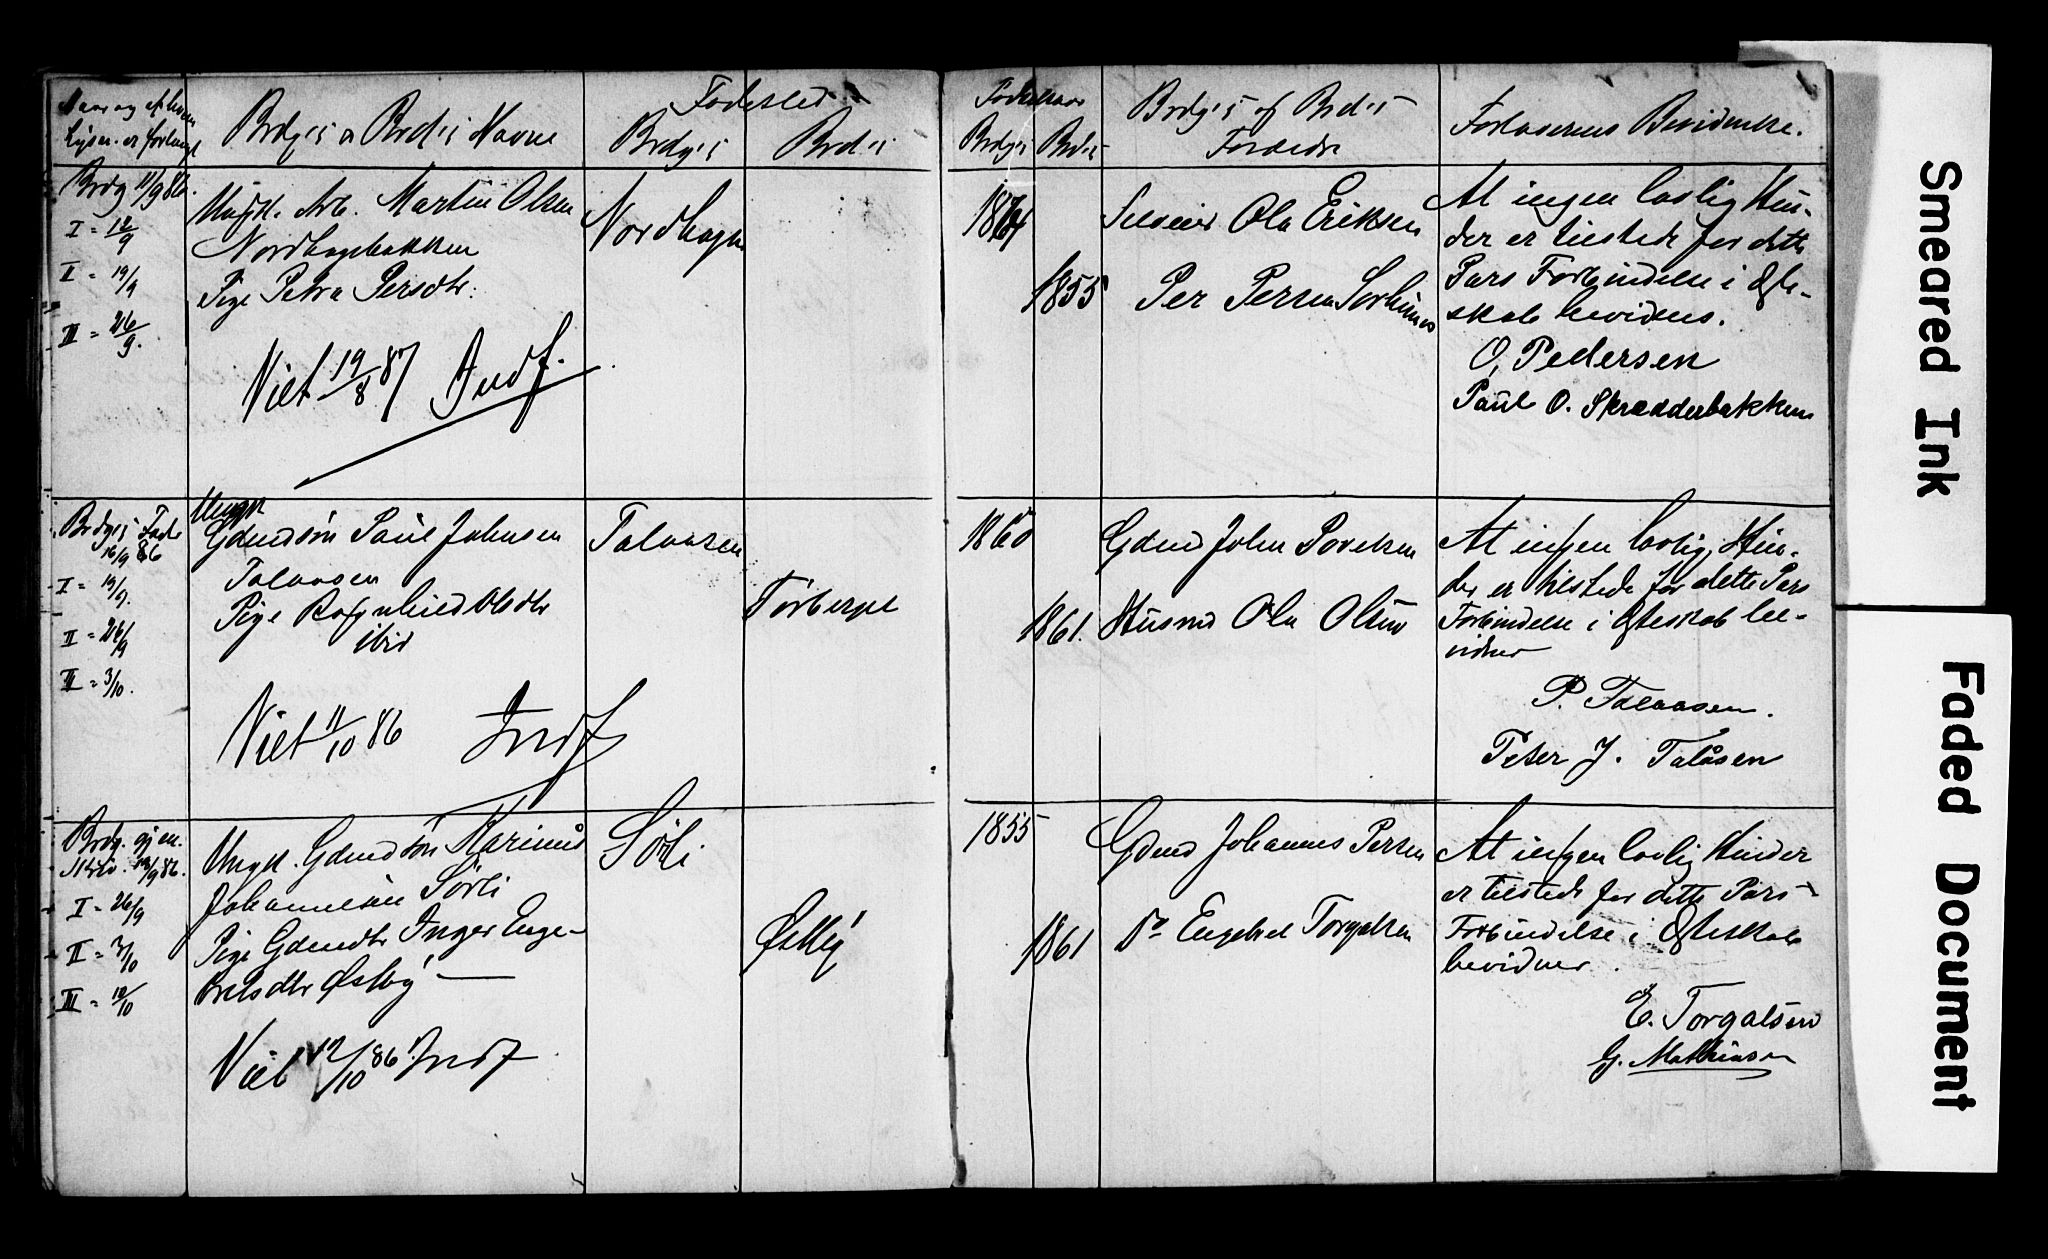 Naar og af hvem
Lysn. er forlangt
Brdg's o Brd's Navne
Fødested
Brdg's
Brd's
Fødselsaar
Brdg's
Brd's
Brdg's og Brd's
Forældre
Forloverens Bevidnelse.
Brdg 11/9 86.
I = 12/9
II = 19/9
III = 26/9.
Ungk. Arb. Martin Olsen
Nordhagebakken
Pige Petra Persdtr.
Viet 19/8 87 Indf.
Nordhagen
1864
1855
Selveier Ola Eriksen
Per Persen Sorhuus
At ingen lovlig Hin-
der er tilstede for dette
Pars Forbindelse i Egte-
skab bevidnes.
O. Pedersen
Paul O. Skrædderbakken
Brdg's Fader
16/9 86
I = 19/9.
II = 26/9
III = 3/10.
Ungk
Gdmdsøn Paul Johnsen
Talaasen
Pige Ragnhild Olsdtr
ibid
Viet 11/10 86 Indf
Talaasen
Torberget
1860
1861.
Gdmd John Povelsen
Husmd Ola Olsen
At ingen lovlig Hin-
der er tilstede for dette Pars
Forbindelse i Egteskab be-
vidnes
P. Talaasen.
Peter J. Talåsen
Brdg. gj en.
Skriv. 19/9 86.
I = 26/9
II = 3/10
III = 10/10
Ungk. Gdmdsøn Karinus
Johannesen Sörli
Pige Gdmdtr Inger Enge-
bretsdtr Østby
Viet 12/10 86 Indf
Sörli
Østby
1855
1861
Gdmd Johannes Persen
Do Engebret Torgalsen
At ingen lovlig Hinder
er tilstede for dette Pars
Forbindelse i Egteskab
bevidnes.
E. Torgalsen
G. Mathiesen
Smeared Ink
Faded Document